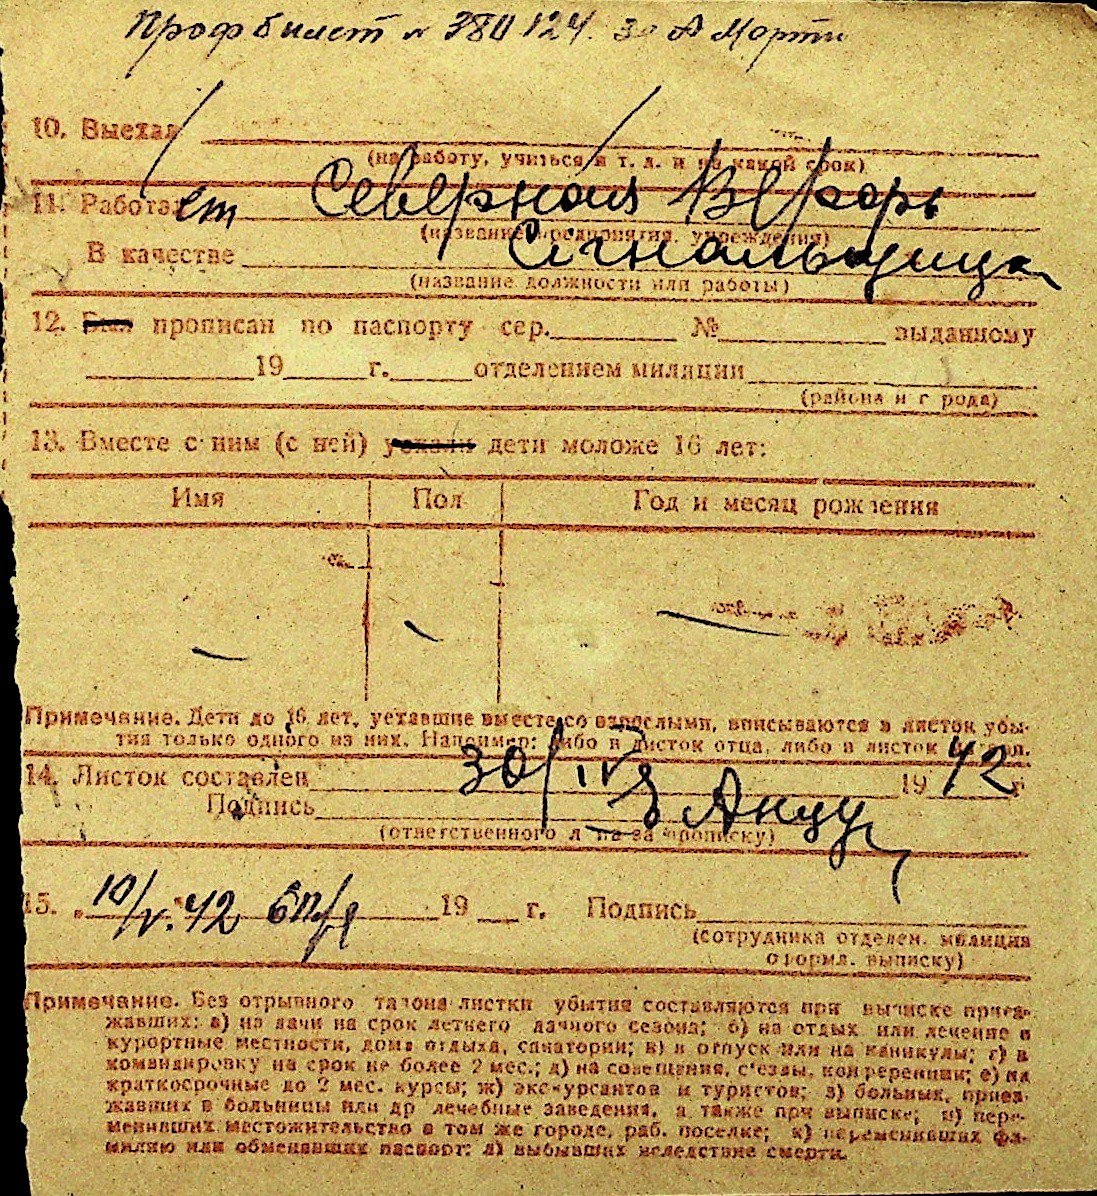 Профбилет № 380124. з-д Марти
10. Выехал
(на работу, учиться и т. д. и на какой срок)
11. Работает Северная Верфь
(название предприятия, учреждения)
В качестве Сигнальщица
(название должности или работы)
12. Был прописан по паспорту сер. № выданному
19 г. отделением милиции
(района и города)
13. Вместе с ним (с ней) уехали дети моложе 16 лет:
Имя Пол Год и месяц рождения
Примечание. Дети до 16 лет, уехавшие вместе со взрослыми, вписываются в листок убы-
тия только одного из них. Например: либо в листок отца, либо в листок
14. Листок составлен 30/IV 1942 г
Подпись
(ответственного л за прописку)
15. „10/V. 42 6 п/я 19 г. Подпись
(сотрудника отделен. милиции
оформл. выписку)
Примечание. Без отрывного талона листки убытия составляются при выписке приез-
жавших: а) на дачи на срок летнего дачного сезона; б) на отдых или лечение в
курортные местности, дома отдыха, санатории; в) в отпуск или на каникулы; г) в
командировку на срок не более 2 мес.; д) на совещания, съезды, конференции; е) на
краткосрочные до 2 мес. курсы; ж) экскурсантов и туристов; з) больных, приез-
жавших в больницы или др лечебные заведения, а также при выписке; и) пере-
менивших местожительство в том же городе, раб. поселке; к) переменивших фа-
милию или обменявших паспорт; л) выбывших вследствие смерти.